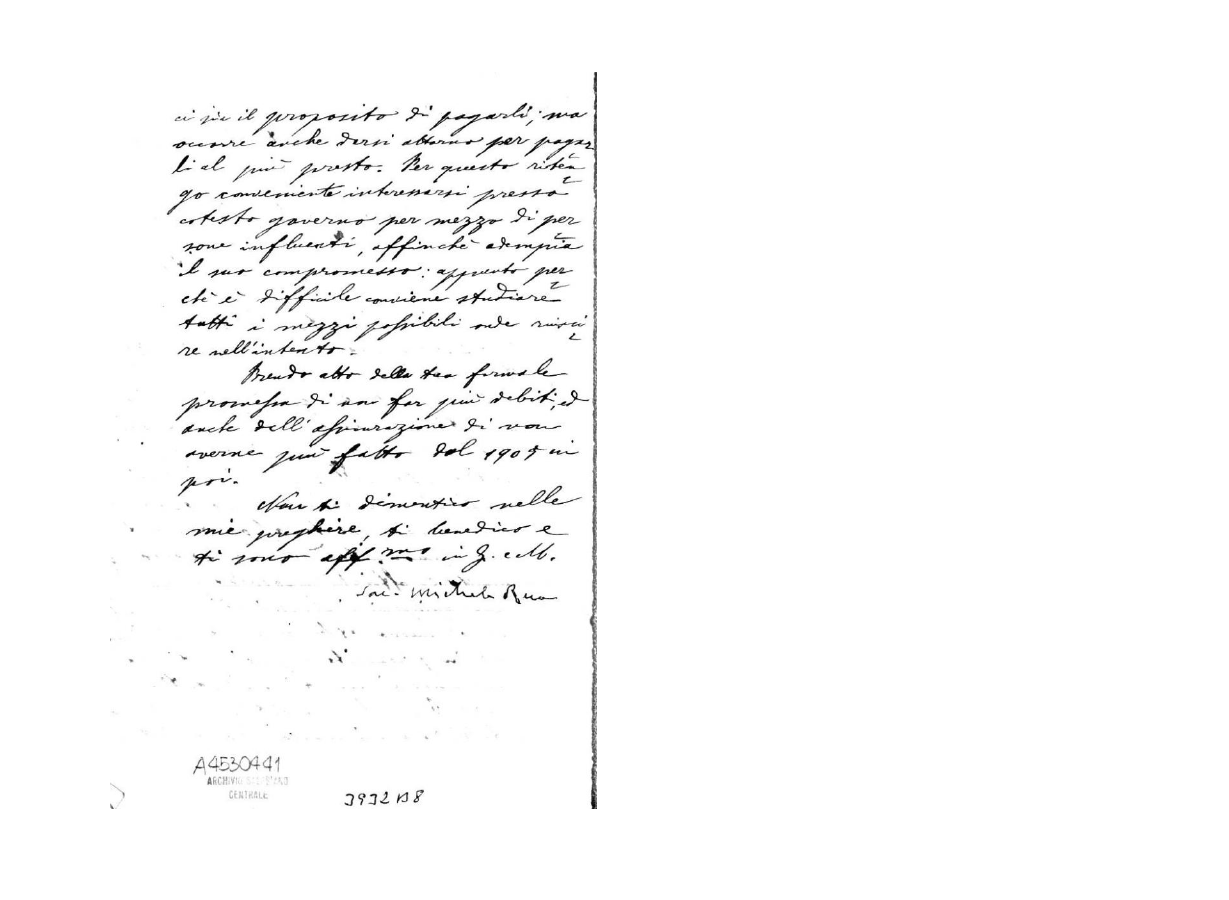 ci sia il proposito di pagarli; ma
occorre anche darsi attorno per pagar
li al più presto. Per questo riten
go conveniente interessarsi presso
cotesto governo per mezzo di per
sone influenti, affinchè adempia
il suo compromesso: appunto per
chè è difficile conviene studiare
tutti i mezzi possibili onde riusci
re nell'intento.
Prendo atto della tua formale
promessa di non far più debiti, ed
anche dell'assicurazione di non
averne più fatto dal 1905 in
poi.
Non ti dimentico nelle
mie preghiere, ti benedico e
ti sono aff.mo in G. e M.
Sac. Michele Rua
A4530441
ARCHIVIO SALESIANO
CENTRALE
3932 B8